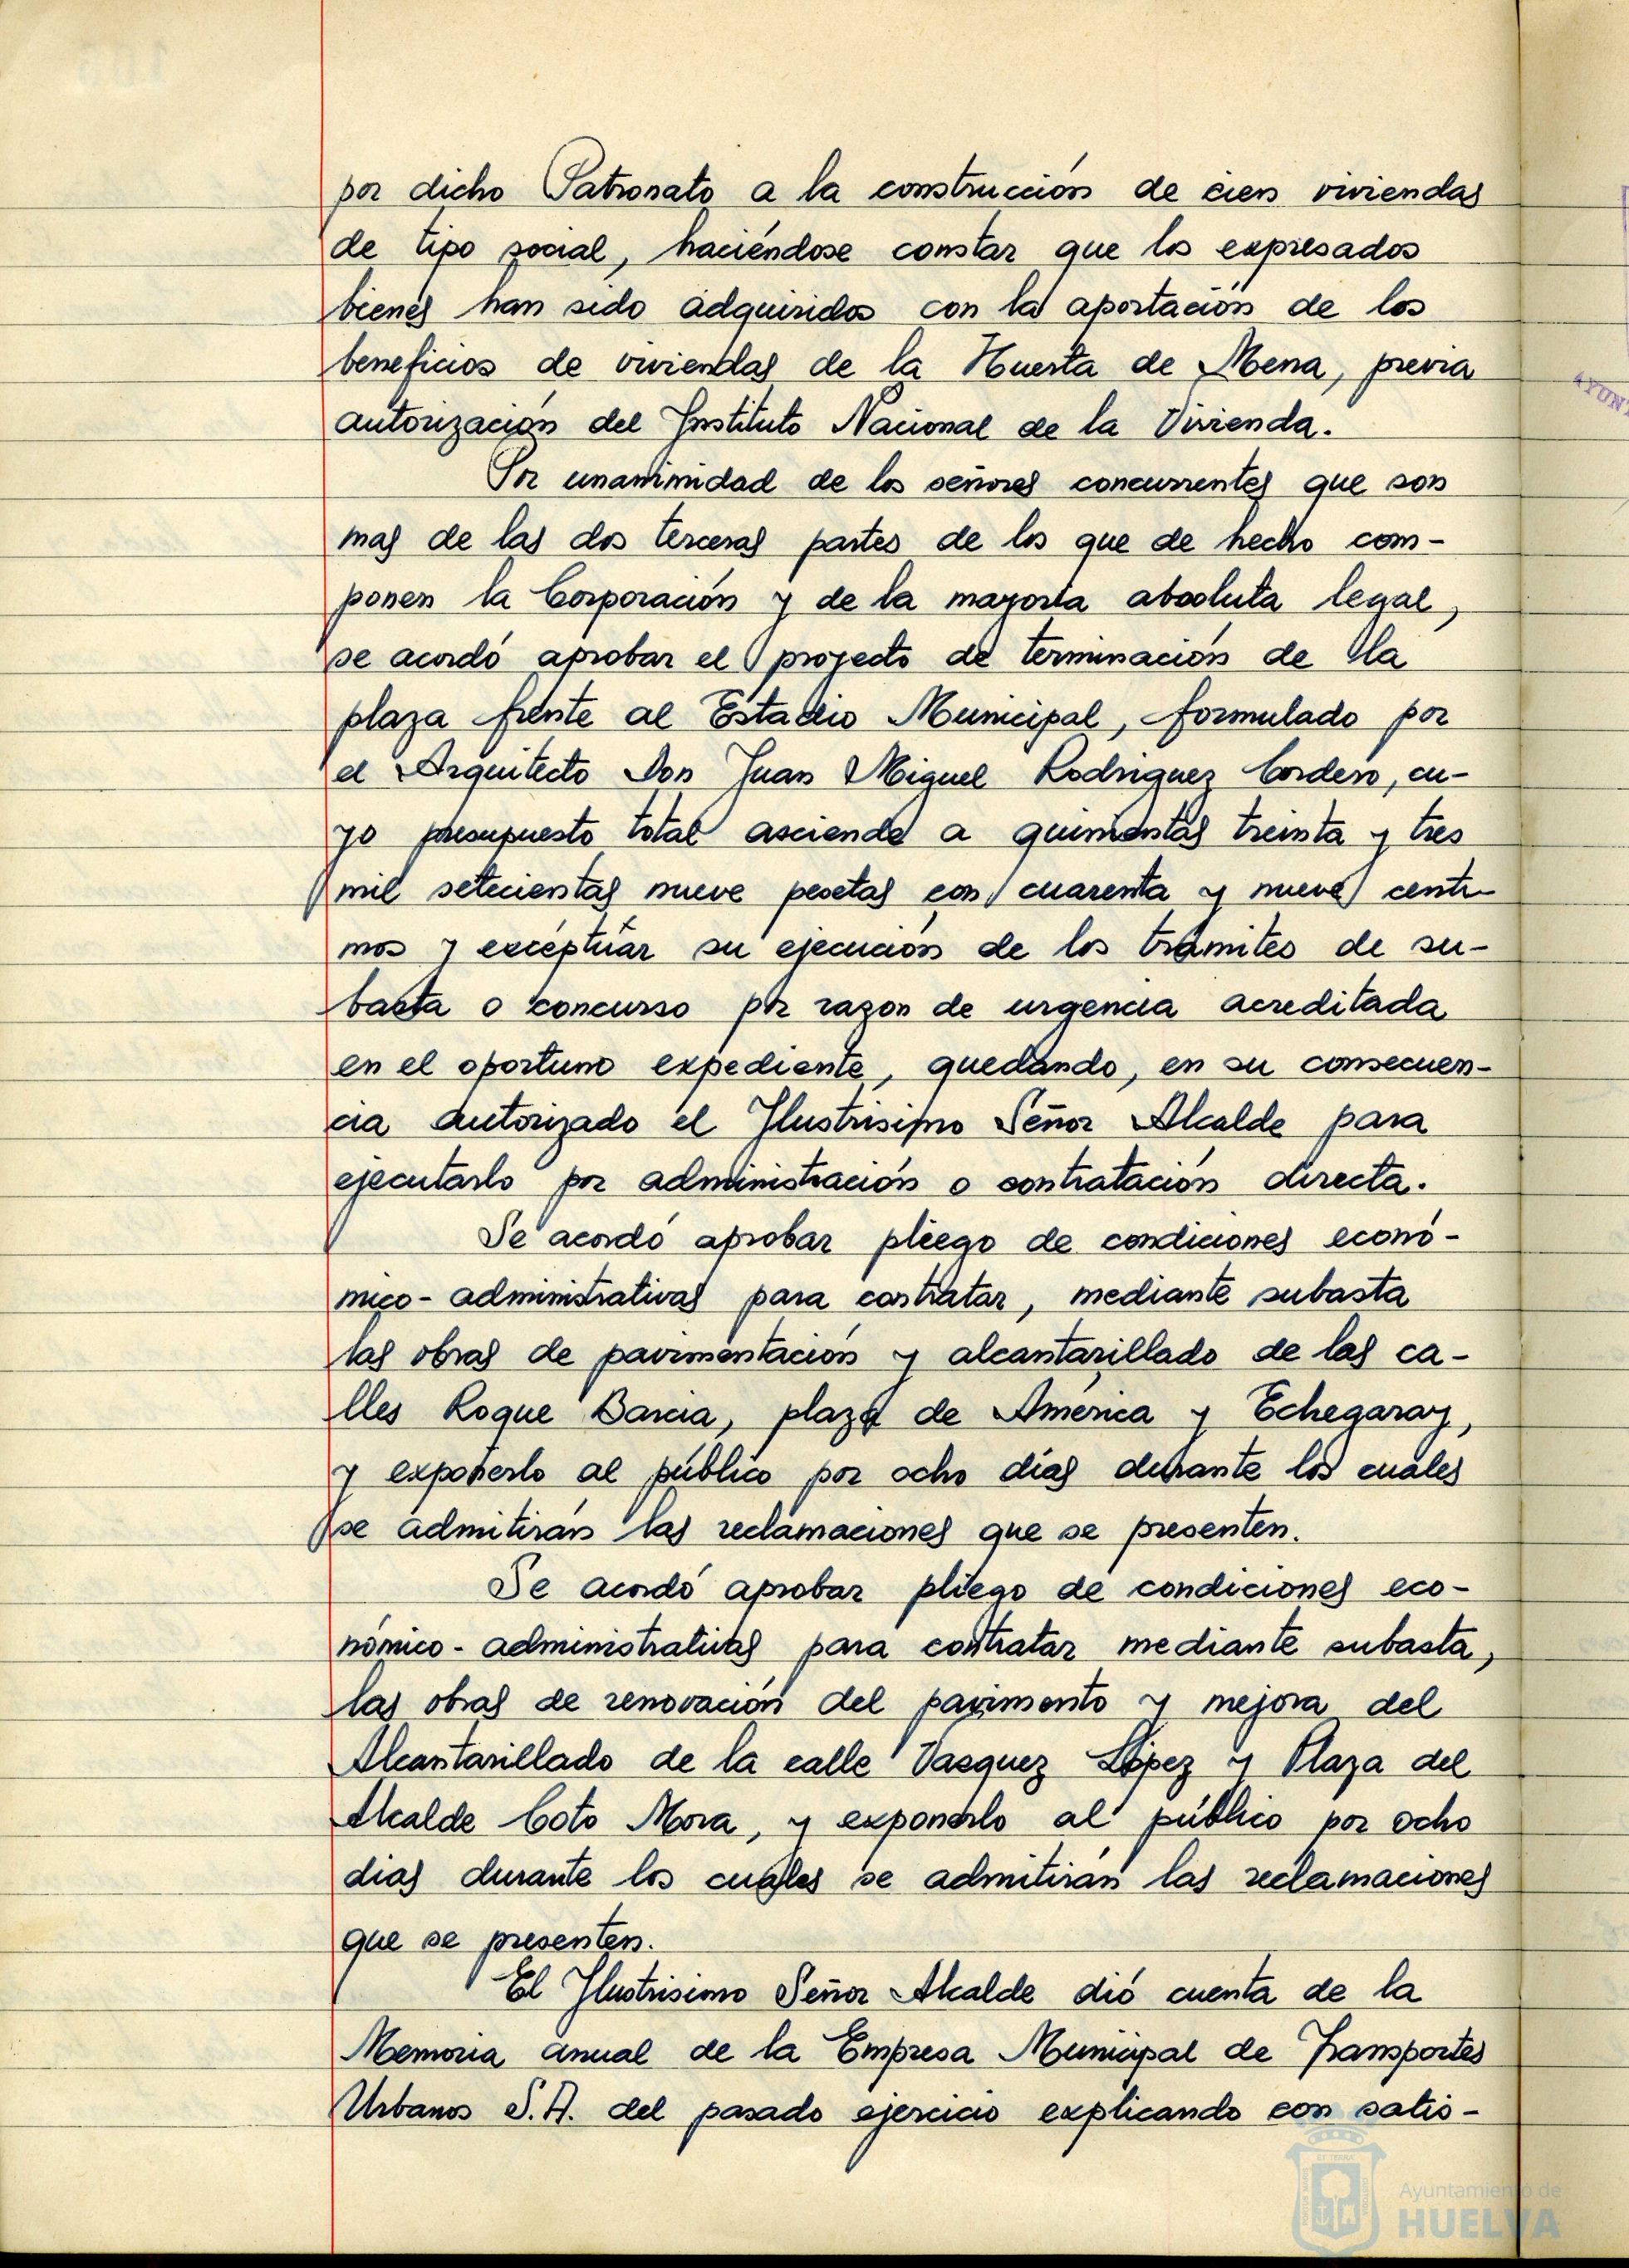 por dicho Patronato a la construcción de cien viviendas
de tipo social, haciéndose constar que los expresados
bienes han sido adquiridos con la aportación de los
beneficios de viviendas de la Huerta de Mena, previa
autorización del Instituto Nacional de la Vivienda.
Por unanimidad de los señores concurrentes que son
mas de las dos terceras partes de los que de hecho com-
ponen la Corporación y de la mayoría absoluta legal,
se acordó aprobar el proyecto de terminación de la
plaza frente al Estadio Municipal, formulado por
el Arquitecto Don Juan Miguel Rodriguez Cordero, cu-
yo presupuesto total asciende a quinientas treinta y tres
mil setecientas nueve pesetas con cuarenta y nueve centi-
mos y exceptuar su ejecución de los trámites de su-
basta o concurso por razon de urgencia acreditada
en el oportuno expediente, quedando, en su consecuen-
cia autorizado el Ilustrisimo Señor Alcalde para
ejecutarlo por administración o contratación directa.
Se acordó aprobar pliego de condiciones econó-
mico-administrativas para contratar, mediante subasta
las obras de pavimentación y alcantarillado de las ca-
lles Roque Barcia, plaza de América y Echegaray,
y exponerlo al público por ocho días durante los cuales
se admitirán las reclamaciones que se presenten.
Se acordó aprobar pliego de condiciones eco-
nómico-administrativas para contratar mediante subasta,
las obras de renovación del pavimento y mejora del
Alcantarillado de la calle Vazquez López y Plaza del
Alcalde Coto Mora, y exponerlo al público por ocho
dias durante los cuales se admitirán las reclamaciones
que se presenten.
El Ilustrisimo Señor Alcalde dió cuenta de la
Memoria anual de la Empresa Municipal de Transportes
Urbanos S.A. del pasado ejercicio explicando con satis-
Ayuntamiento de
HUELVA